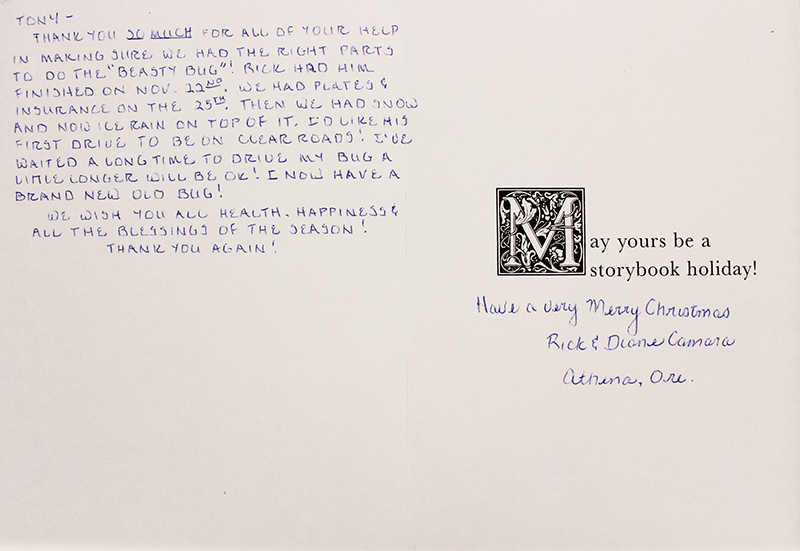 TONY-
THANK YOU SO MUCH FOR ALL OF YOUR HELP
IN MAKING SURE WE HAD THE RIGHT PARTS
TO DO THE "BEASTY BUG"! RICK HAD HIM
FINISHED ON NOV. 22ND. WE HAD PLATES &
INSURANCE ON THE 25TH. THEN WE HAD SNOW
AND NOW ICE RAIN ON TOP OF IT. I'D LIKE HIS
FIRST DRIVE TO BE ON CLEAR ROADS! I'VE
WAITED A LONG TIME TO DRIVE MY BUG A
LITTLE LONGER WILL BE OK! I NOW HAVE A
BRAND NEW OLD BUG!
WE WISH YOU ALL HEALTH. HAPPINESS &
ALL THE BLESSINGS OF THE SEASON!
THANK YOU AGAIN!
May yours be a
storybook holiday!
Have a very Merry Christmas
Rick & Diane Camara
Athena, Ore.